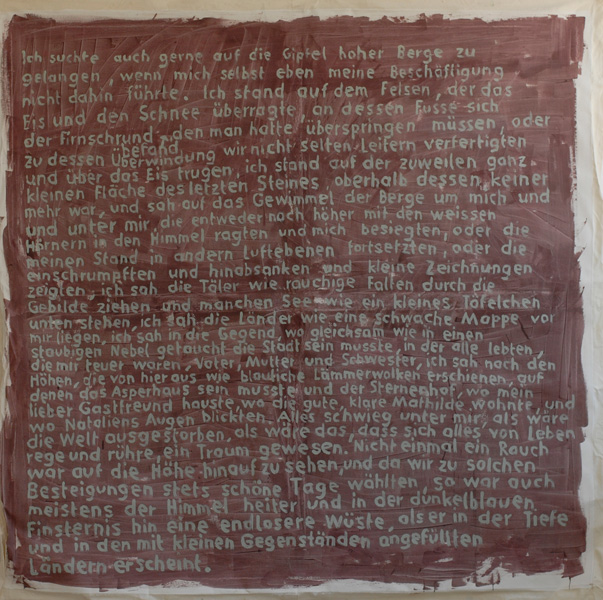 Ich suchte auch gerne auf die Gipfel hoher Berge zu
gelangen, wenn mich selbst eben meine Beschäftigung
nicht dahin führte. Ich stand auf dem Felsen, der das
Eis und den Schnee überragte an dessen Fusse sich
der Firnschrund befand, den man hatte überspringen müssen, oder
zu dessen Überwindung wir nicht selten Leitern verfertigten
und über das Eis trugen, ich stand auf der zuweilen ganz
kleinen Fläche des letzten Steines, oberhalb dessen keiner
mehr war, und sah auf das Gewimmel der Berge um mich und
und unter mir, die entweder noch höher mit den weissen
Hörnern in den Himmel ragten und mich besiegten, oder die
meinen Stand in andern Luftebenen fortsetzten, oder die
einschrumpften und hinabsanken und kleine Zeichnungen
zeigten, ich sah die Täler wie rauchige Falten durch die
Gebilde ziehen und manchen See wie ein kleines Täfelchen
unten stehen, ich sah die Länder wie eine schwache Mappe vor
mir liegen, ich sah in die Gegend, wo gleichsam wie in einen
staubigen Nebel getaucht die Stadt sein musste, in der alle lebten,
die mir teuer waren, Vater, Mutter und Schwester, ich sah nach den
Höhen, die von hier aus wie blauliche Lämmerwolken erschienen, auf
denen das Asperhaus sein musste und der Sternenhof, wo mein
lieber Gastfreund hauste, wo die gute, klare Mathilde wohnte, und
wo Nataliens Augen blickten. Alles schwieg unter mir, als wäre
die Welt ausgestorben, als wäre das, dass sich alles von Leben
rege und rühre, ein Traum gewesen. Nicht einmal ein Rauch
war auf die Höhe hinauf zu sehen, und da wir zu solchen
Besteigungen stets schöne Tage wählten, so war auch
meistens der Himmel heiter und in der dunkelblauen
Finsternis hin eine endlosere Wüste, als er in der Tiefe
und in den mit kleinen Gegenständen angefüllten
Ländern erscheint.